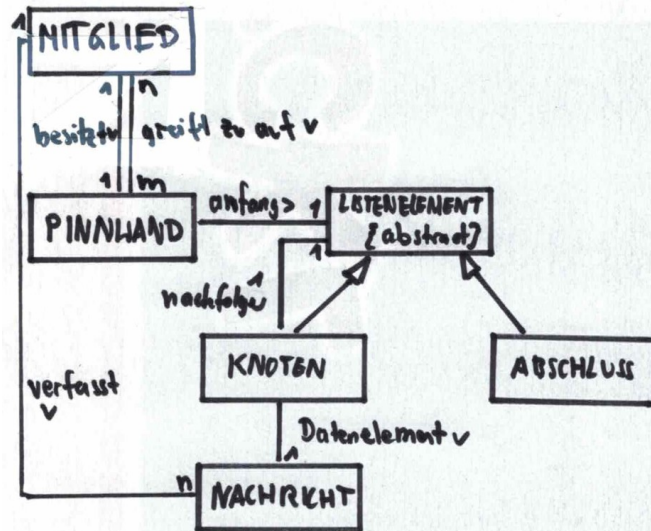 1
MITGLIED
1 n
besitzt v greift zu auf v
1 m
PINNWAND
anfang > 1
LISTENELEMENT
{abstract}
1
nachfolger 1
KNOTEN
ABSCHLUSS
verfasst
v
Datenelement v
1
n
NACHRICHT